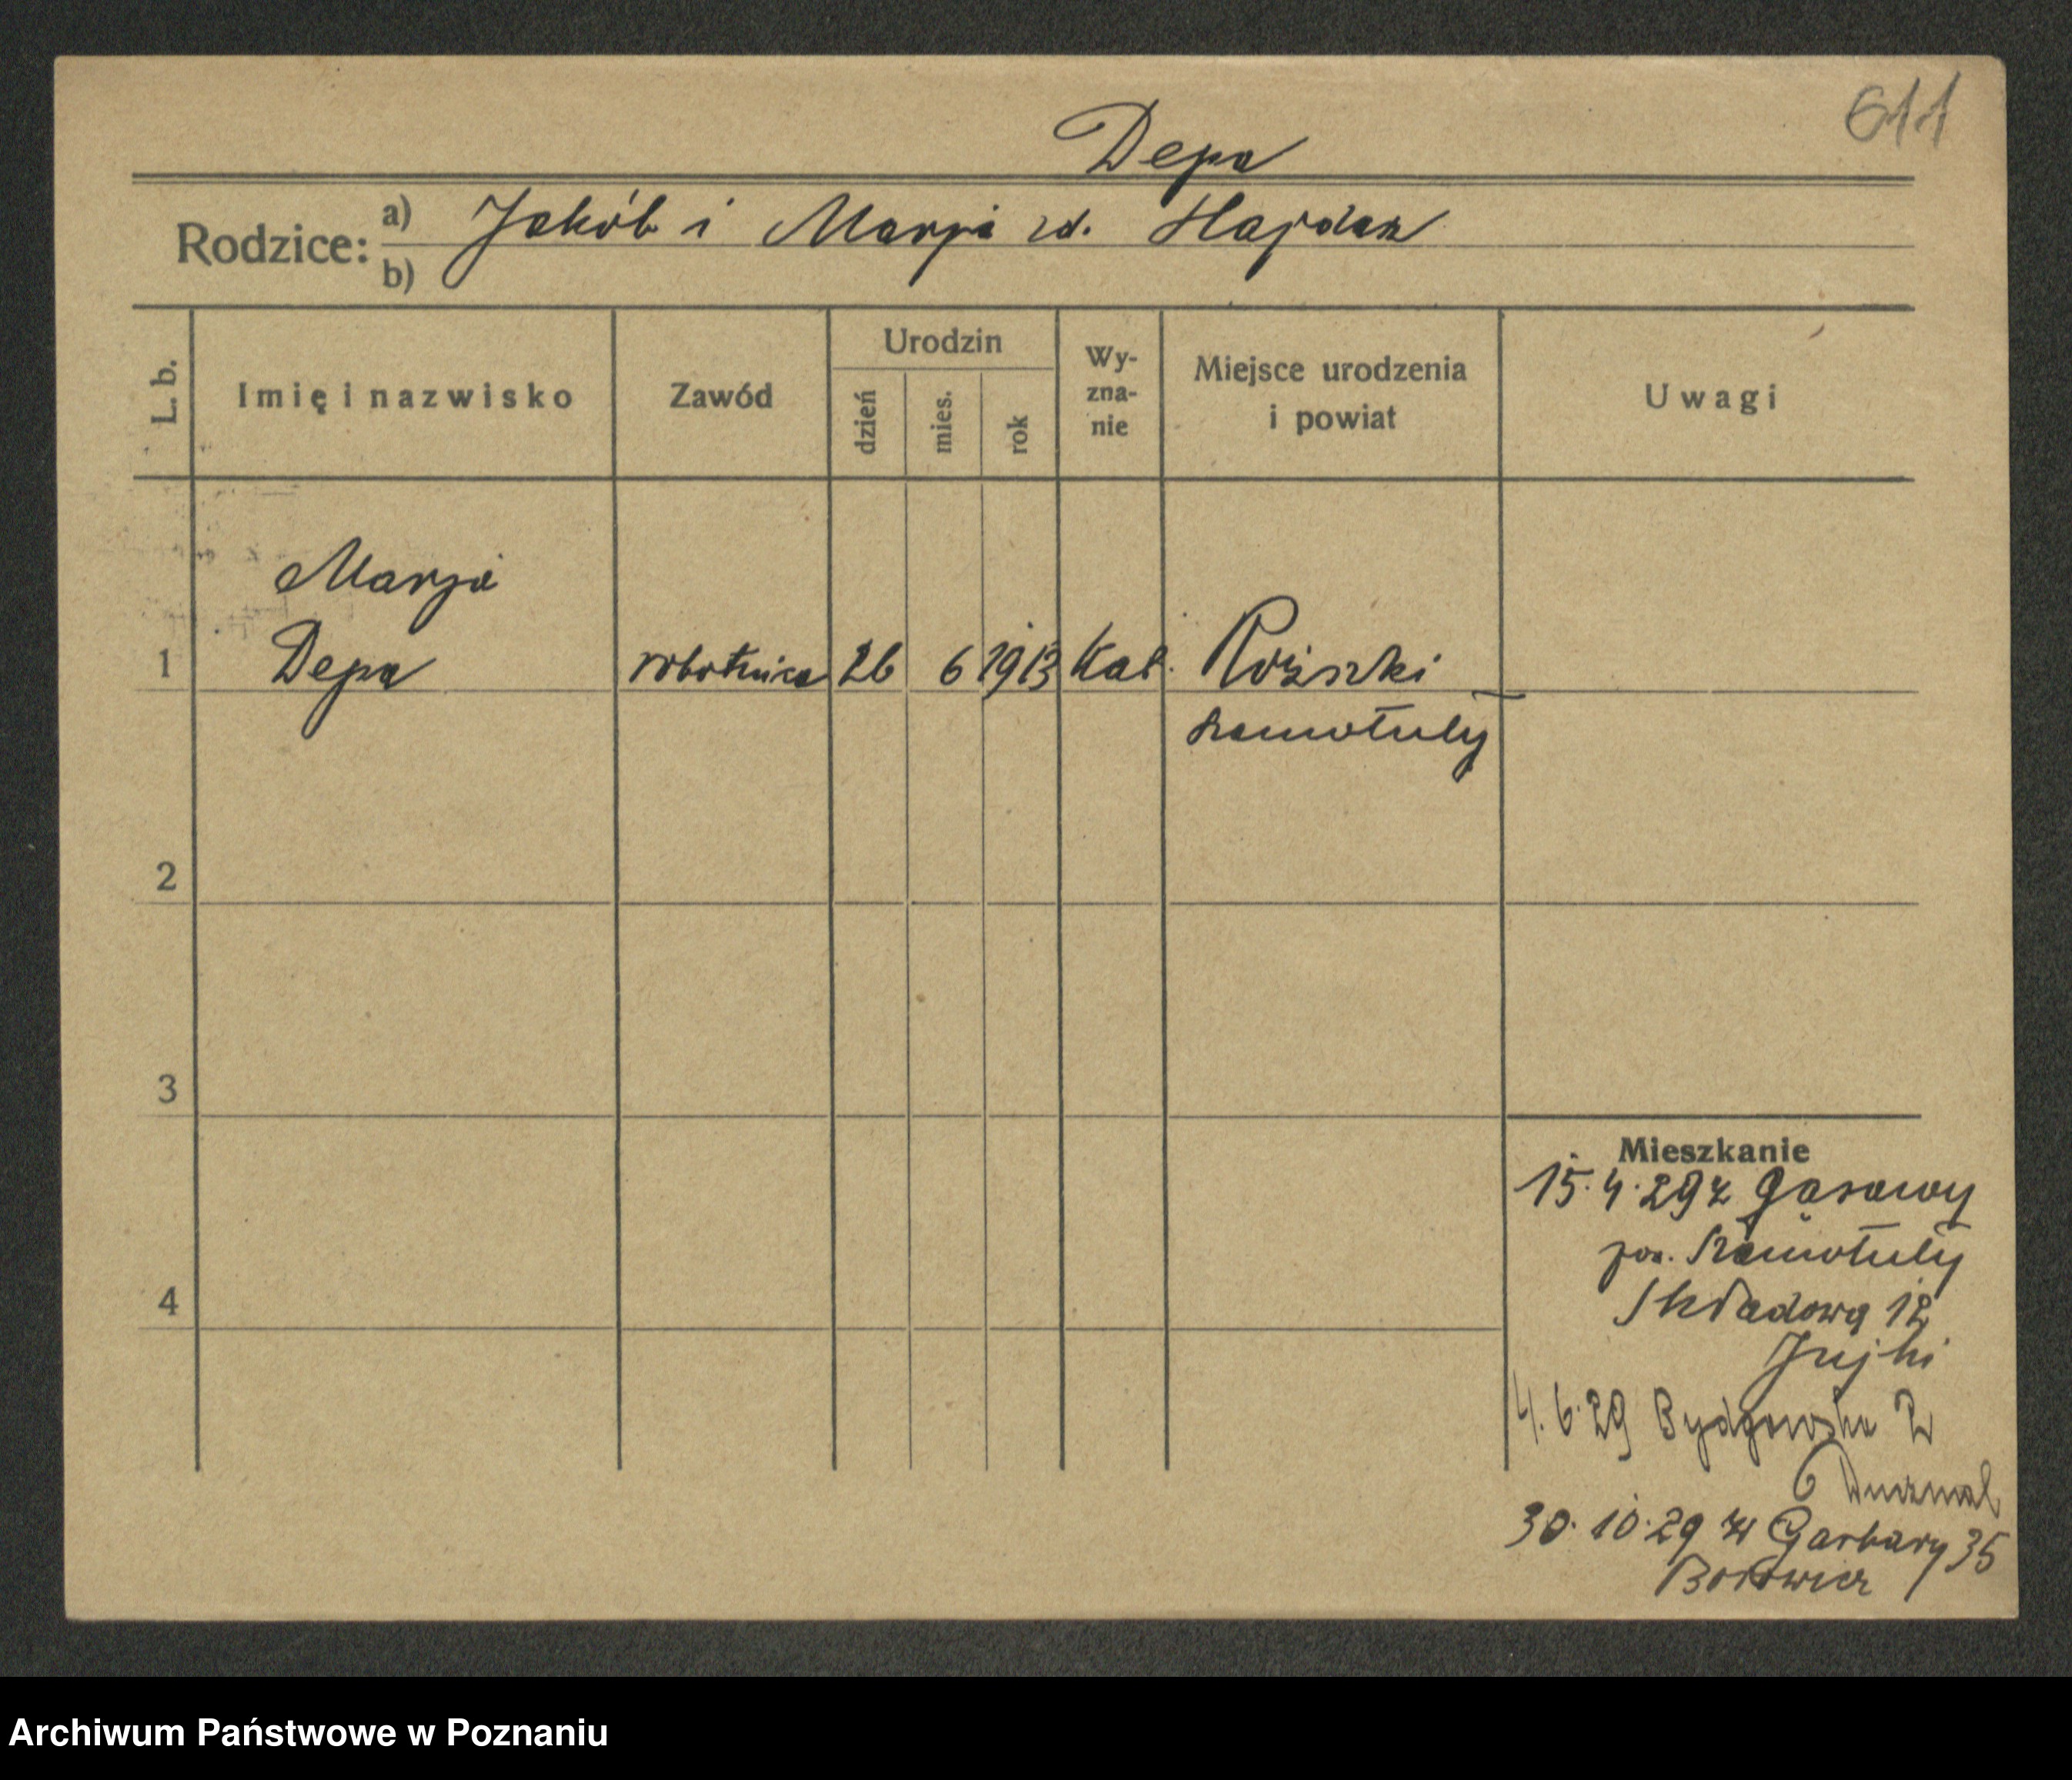 611
Depa
Rodzice: a) Jakób i Marja zd. Hajdasz
b)
L. b. Imię i nazwisko Zawód Urodzin dzień mies. rok Wy-zna-nie Miejsce urodzenia i powiat Uwagi
Marja
1 Depa robotnica 26 6 1913 kat. Róższki
Szamotuły
2
3
Mieszkanie
15.4.29 z Gąsawy
pow. Szamotuły
4 Składowa 12
4.6.29 Bydgowska 2
30.10.29 Garbary 35
Borowicz
Archiwum Państwowe w Poznaniu